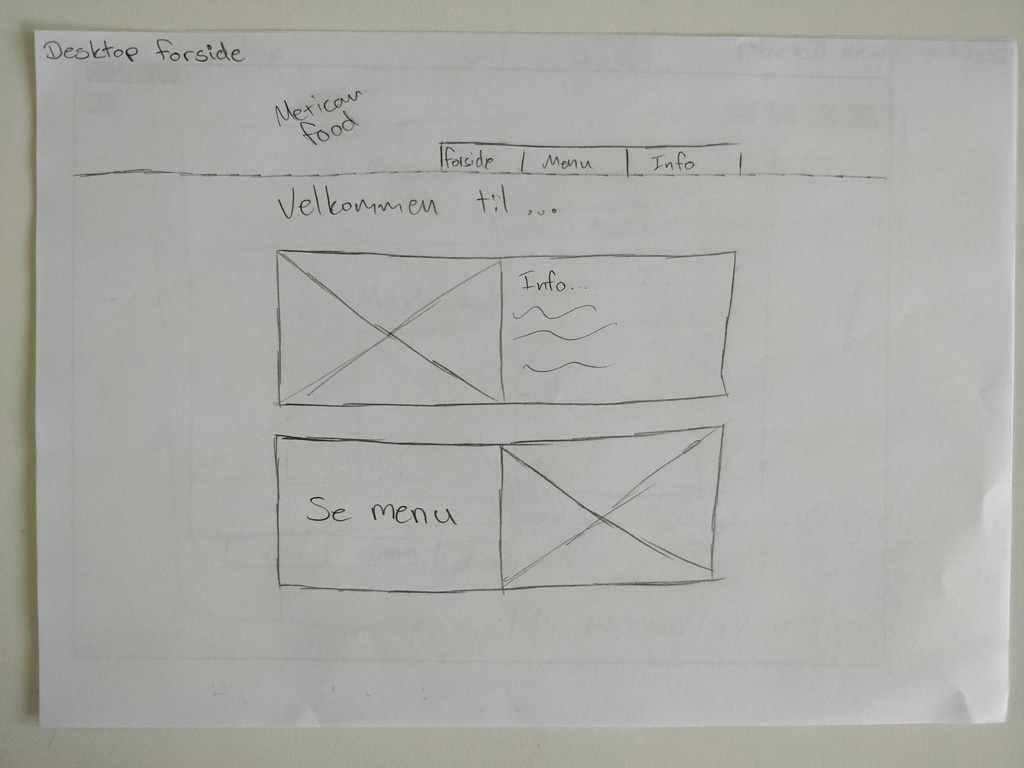 Desktop forside
Mexican
food
forside Menu Info
Velkommen til ...
Info...
Se menu